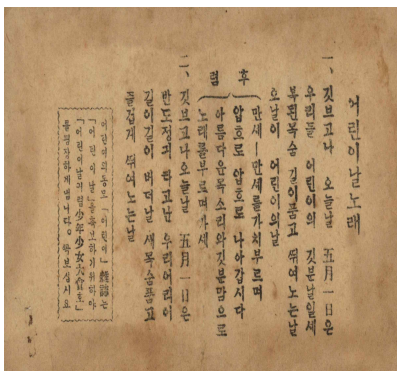 어린이날노래
一、깃브고나 오늘날 五月一日은
우리들 어린이의 깃분날일세
복된목숨 길이품고 뛰여노는날
오날이 어린이의날
후렴
만세ㅣ만세를가치부르며
압흐로 압흐로 나아갑시다
아름다운목소리와깃분맘으로
노래를부르며가세
二、깃브고나 오늘날 五月一日은
반도정긔 타고난 우리어린이
길이길이 버더날 새목숨품고
즐겁게 뛰여노는날
어린이의동모「어린이」雜誌는
「어린이날」을츅보하기위하야
「어린이날긔렴少年少女大會」